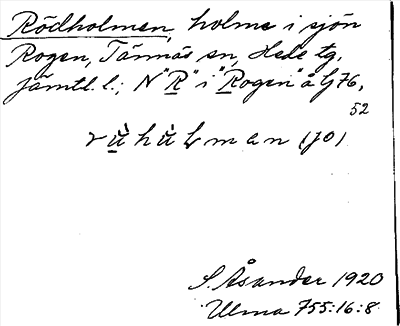 Rödholmen, holme i sjön
Rogen, Tännäs sn, Hede tg,
Jämtl. l.; N "R" i "Rogen" å G 76,
52
(jo)
S. Åsander 1920
Ulma 755:16:8